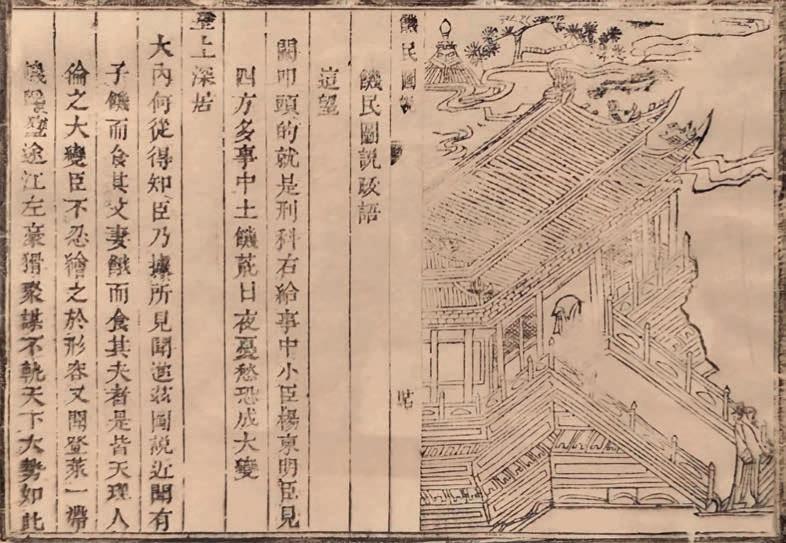 饑民圖説
饑民圖説跋語
這望
闕叩頭的就是刑科右給事中小臣楊東明臣見
四方多事中土饑荒日夜憂愁恐成大變
聖上深居
大內何從得知臣乃據所見聞進茲圖説近聞有
子饑而食其父妻餓而食其夫者是皆天理人
倫之大變臣不忍繪之於形容又聞登萊一帶
途江左豪猾聚謀不軌天下大勢如此